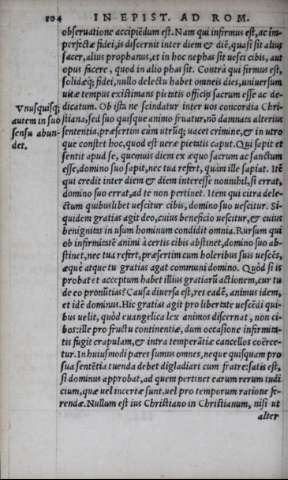 104 IN EPIST. AD ROM.
obseruatione accipiēdum est. Nam qui infirmus est, ac im-
perfectæ fidei, is discernit inter diem & diē, quasi sit alius
sacer, alius prophanus, et in hoc nephas sit uesci cibis, aut
opus facere, quod in alio phas sit. Contrà qui firmus est,
solidæq; fidei, nullo delectu habet omneis dies, uniuersum
uitæ tempus existimans pietatis officijs sacrum esse ac de-
dicatum. Ob ista ne scindatur inter uos concordia Chri-
stiana, sed suo quisque animo fruatur, nō damnans alterius
sententiā, præsertim cùm utrūq; uacet crimine, & in utro
que constet hoc, quod est ueræ pietatis caput. Qui sapit et
sentit apud se, quemuis diem ex æquo sacrum ac sanctum
esse, domino suo sapit, nec tua refert, quàm ille sapiat. Itē
qui credit inter diem & diem interesse nonnihil, si errat,
domino suo errat, ad te non pertinet. Item qui citra dele-
ctum quibuslibet uescitur cibis, domino suo uescitur. Si-
quidem gratias agit deo, cuius beneficio uescitur, & cuius
benignitas in usum hominum condidit omnia. Rursum qui
ob infirmitatē animi à certis cibis abstinet, domino suo ab-
stinet, nec tua refert, præsertim cum holeribus suis uescēs,
æquè atque tu gratias agat communi domino. Quòd si is
probat et acceptum habet illius gratiarū actionem, cur tu
de eo pronūtias? Causa diuersa est, res eadē, animus idem,
et idē dominus. Hic gratias agit pro libertate uescēdi qui-
bus uelit, quòd euangelica lex animos discernat, non ci-
bos: ille pro fructu continentiæ, dum occasione infirmita-
tis fugit crapulam, & intra temperātiæ cancellos coërce-
tur. In huiusmodi pares sumus omnes, neque quisquam pro
sua sentētia tuenda debet digladiari cum fratre: satis est,
si dominus approbat, ad quem pertinet earum rerum iudi
cium, quæ uel incertæ sunt, uel pro temporum ratione fe-
rendæ. Nullum est ius Christiano in Christianum, nisi ut
alter
Vnusquisq;
autem in suo
sensu abun
det.